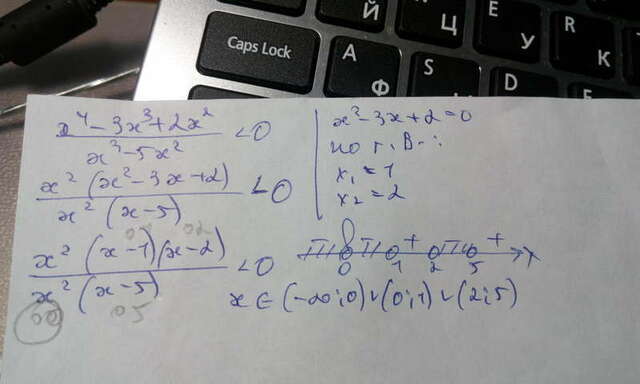 Caps Lock
Й
Ц
E
У
R
К
A
Ф
S
D
x⁴ - 3x³ + 2x² / x³ - 5x² < 0
x² (x² - 3x + 2) / x² (x - 5) < 0
x² (x - 1)(x - 2) / x² (x - 5) < 0
x² - 3x + 2 = 0
по т. В-:
x₁ = 1
x₂ = 2
+ +
0 1 2 5 x
x ∈ (-∞; 0) ∪ (0; 1) ∪ (2; 5)